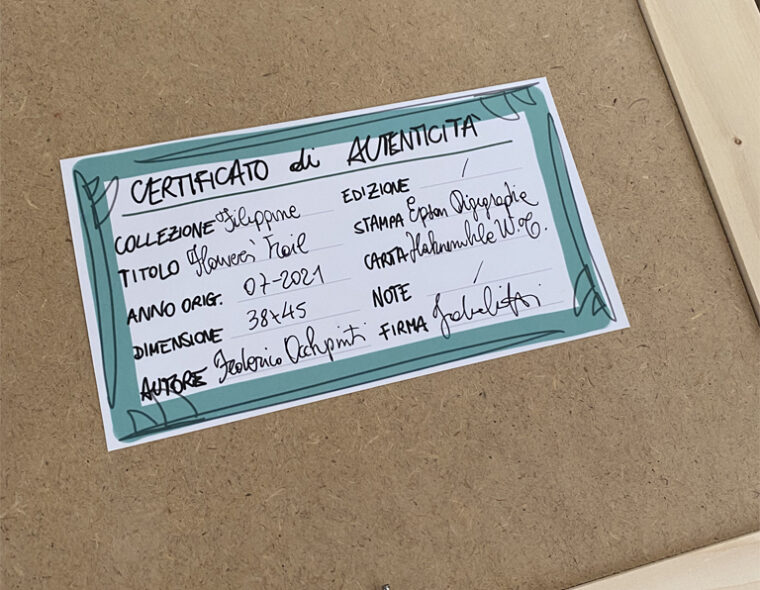 CERTIFICATO di AUTENTICITÀ
COLLEZIONE Filippine
TITOLO Flowers' Trail
ANNO ORIG. 07-2021
DIMENSIONE 38x45
AUTORE Federico Occhipinti
EDIZIONE /
STAMPA Epson Digigraphie
CARTA Hahnemühle W.T.
NOTE /
FIRMA